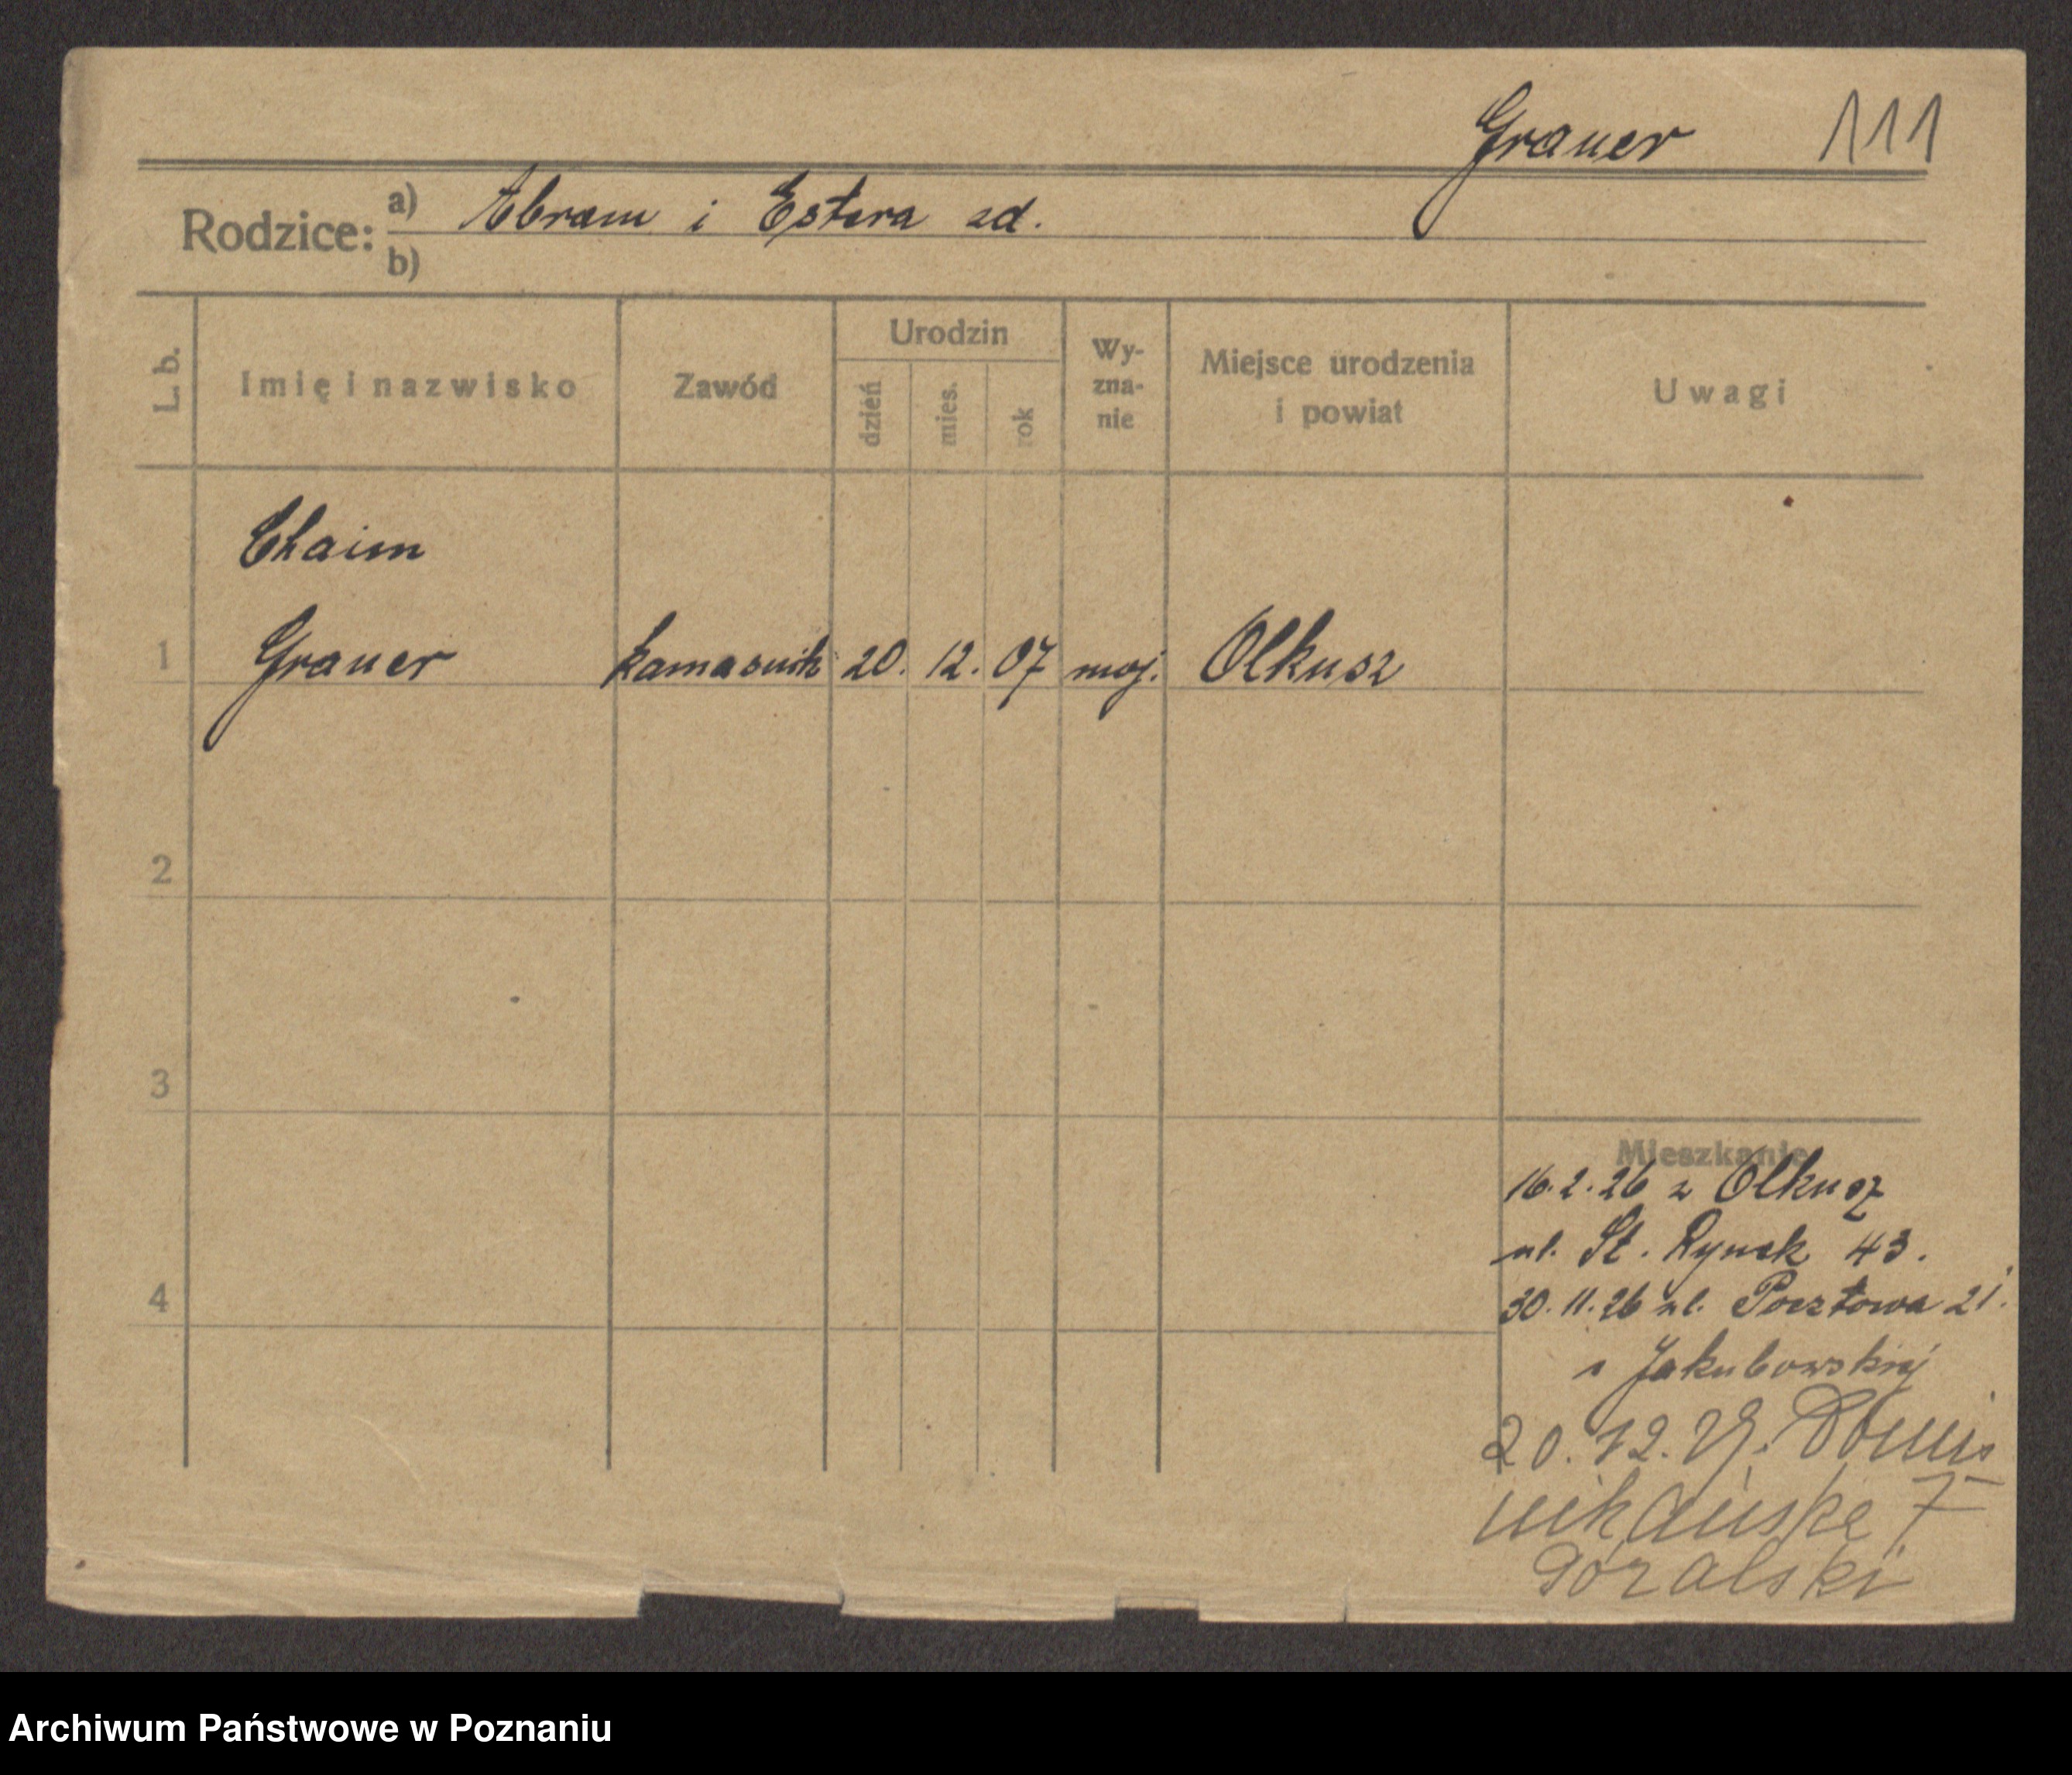 Grauer 111
Rodzice: a) Abram i Estera zd.
b)
L. b. Imię i nazwisko Zawód Urodzin dzień mies. rok Wy-zna-nie Miejsce urodzenia i powiat Uwagi
Chaim
1 Grauer kamasznik 20. 12. 07 moj. Olkusz
2
3
Mieszkanie
16.2.26 z Olkusz
ul. St. Rynek 43.
4
30.11.26 ul. Pocztowa 21.
Jakubowskiej
20.12.29. Domi
nikańska 7
Góralski
Archiwum Państwowe w Poznaniu